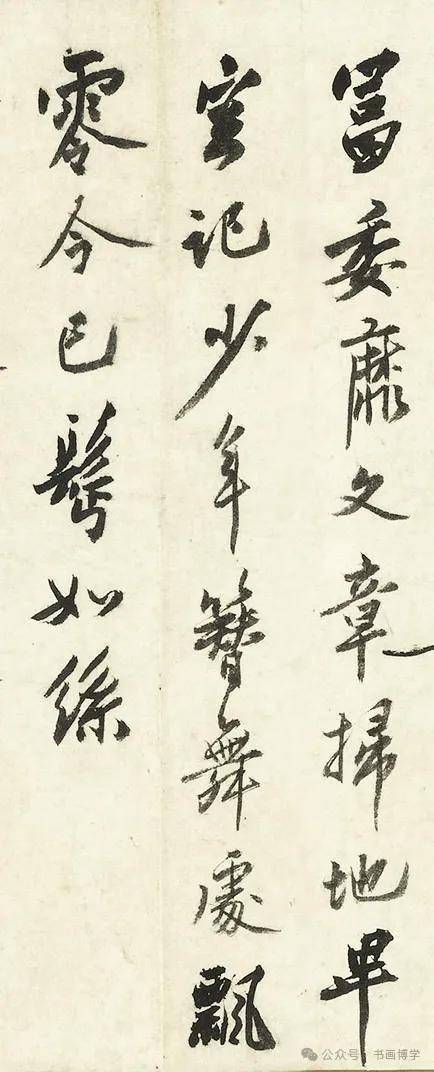 當委靡文章掃地卑
記少年簪舞處飄
零今已鬢如絲
公众号·书画博学